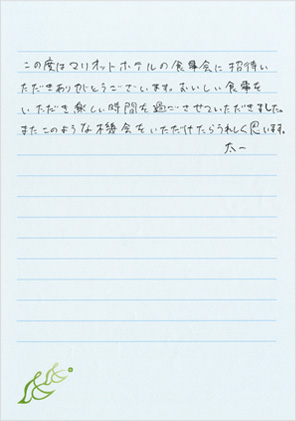 この度はマリオットホテルの食事会に招待い
ただきありがとうございます。おいしい食事を
いただき楽しい時間を過ごさせていただきました。
またこのような機会をいただけたらうれしく思います。
太一